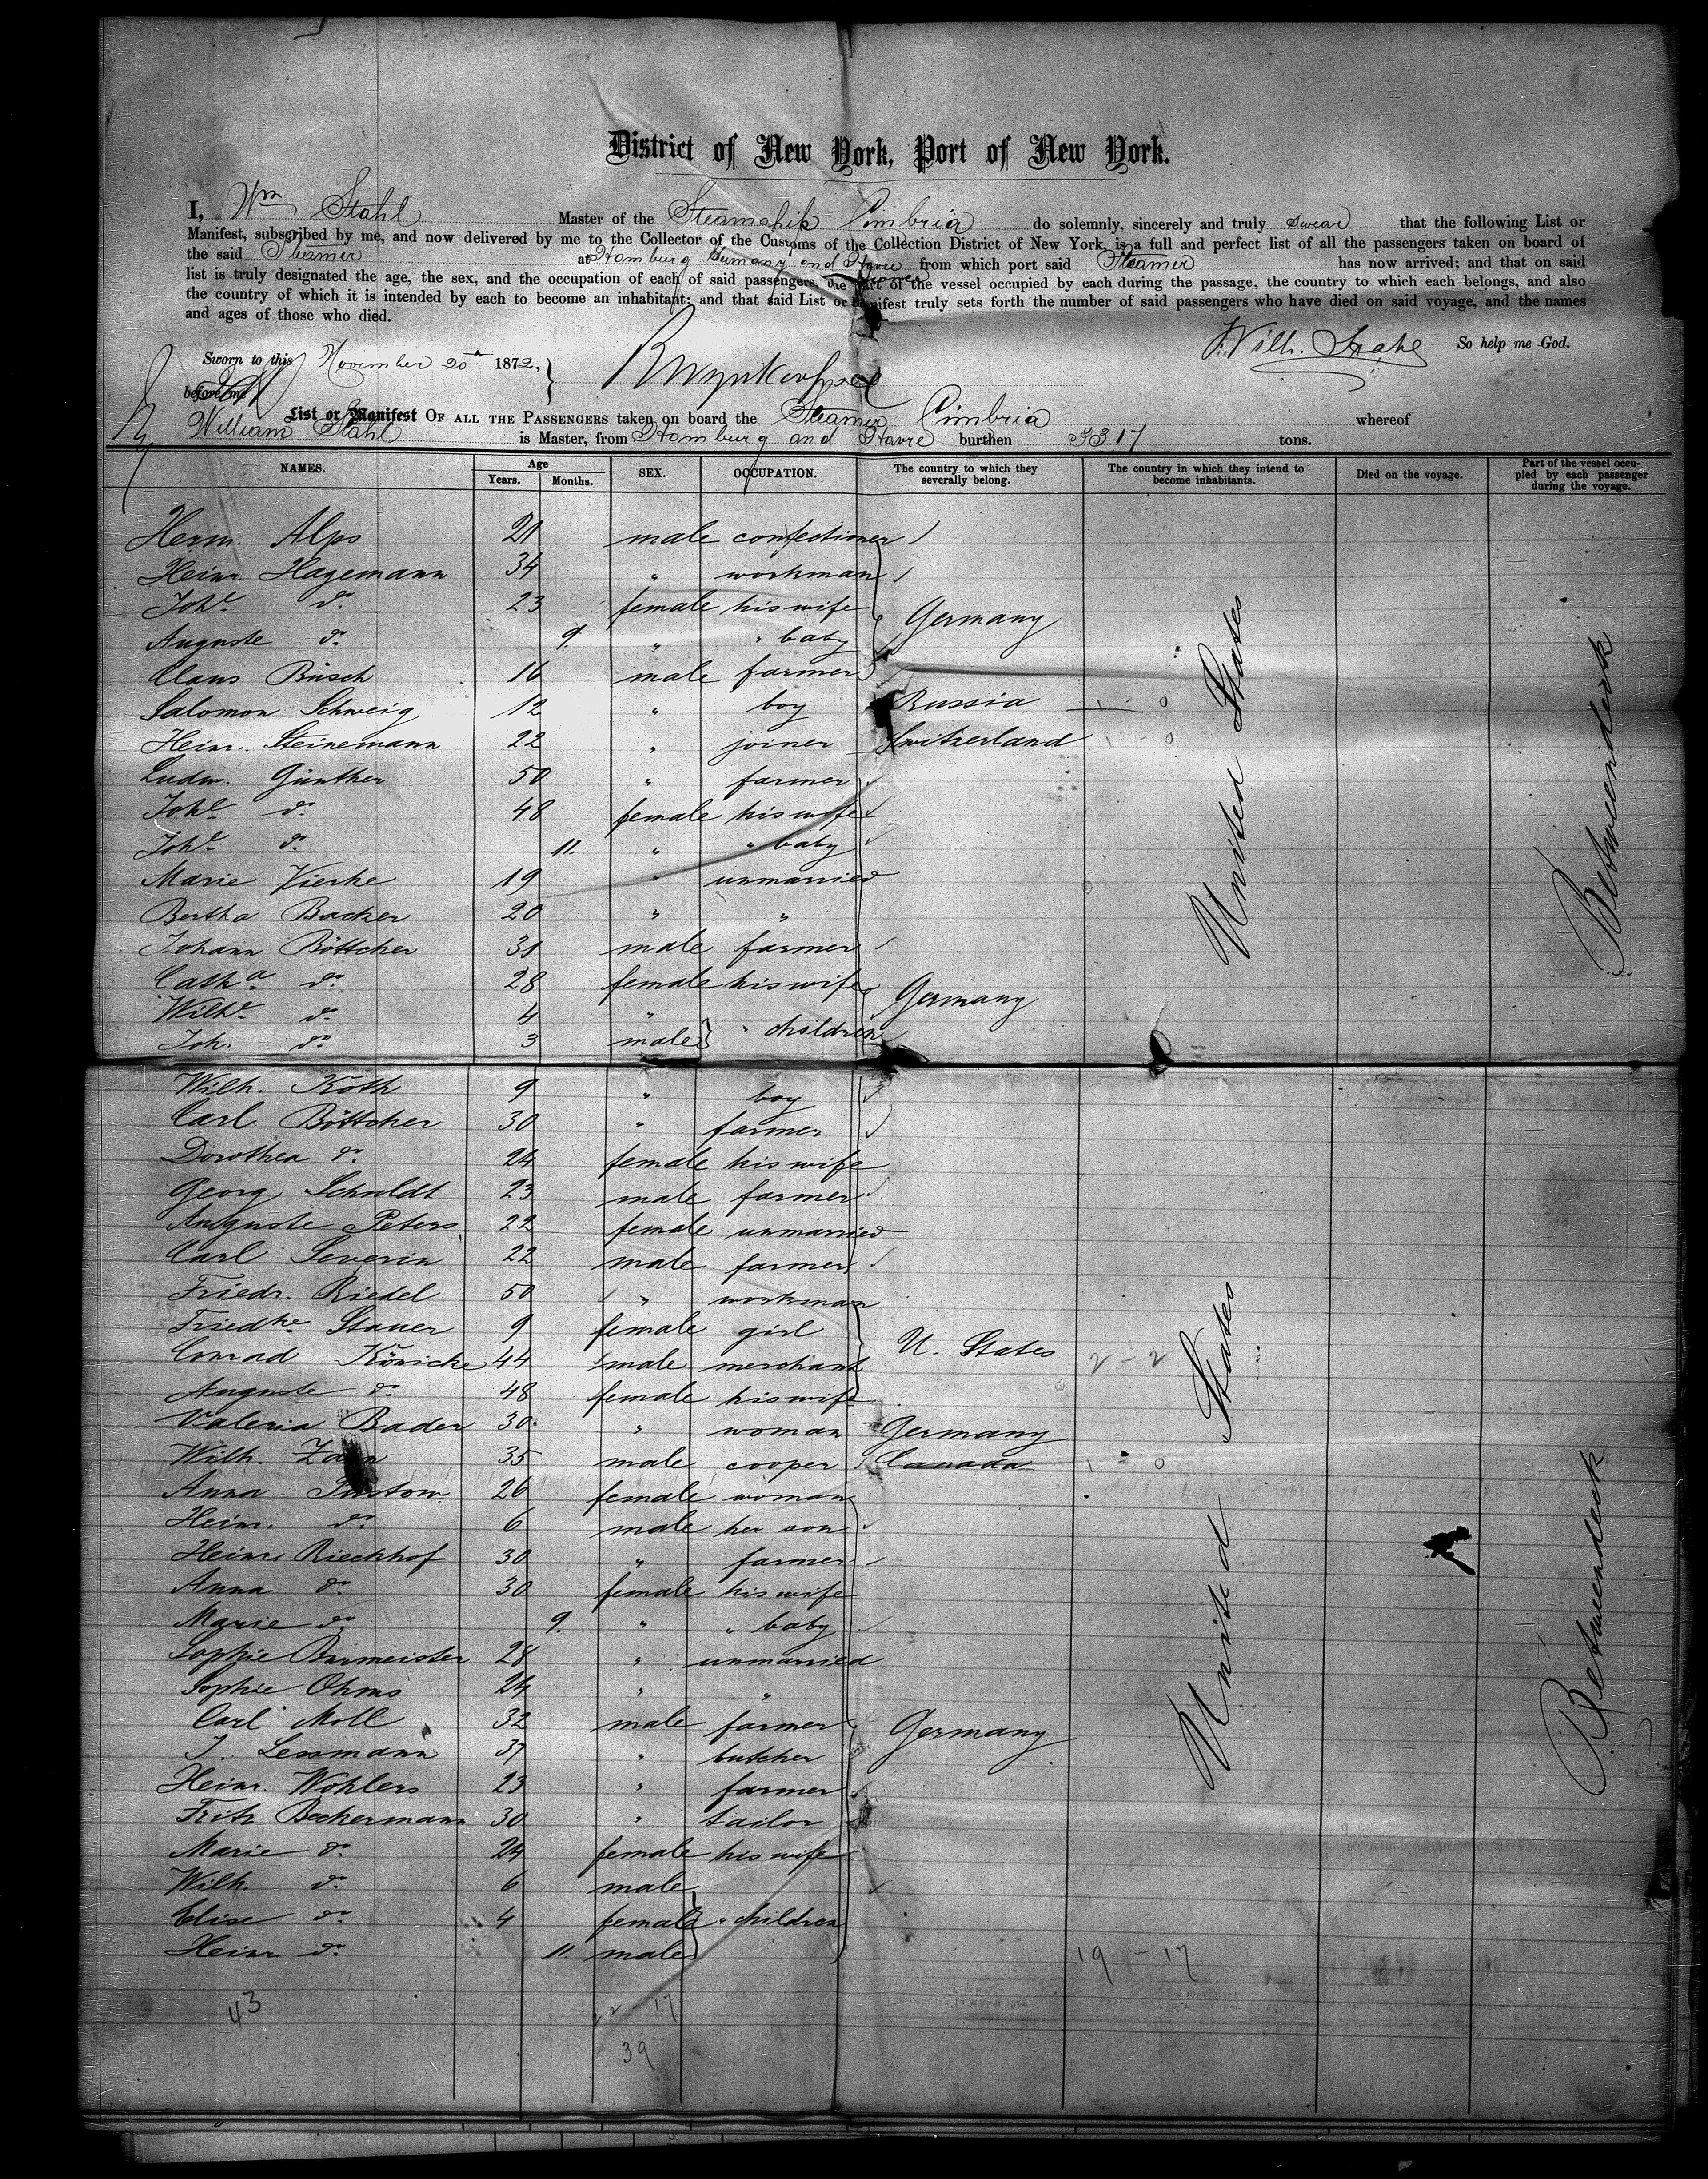 District of New York, Port of New York.
I, Wm Stahl Master of the Steamship Cimbria do solemnly, sincerely and truly swear that the following List or
Manifest, subscribed by me, and now delivered by me to the Collector of the Customs of the Collection District of New York, is a full and perfect list of all the passengers taken on board of
the said Steamer at Hamburg Germany and Havre from which port said Steamer has now arrived; and that on said
list is truly designated the age, the sex, and the occupation of each of said passengers, the part of the vessel occupied by each during the passage, the country to which each belongs, and also
the country of which it is intended by each to become an inhabitant; and that said List or Manifest truly sets forth the number of said passengers who have died on said voyage, and the names
and ages of those who died.
Wilh. Stahl So help me God.
Sworn to this November 20th 1872,
before me
List or Manifest OF ALL THE PASSENGERS taken on board the Steamer Cimbria whereof
William Stahl is Master, from Hamburg and Havre burthen 3317 tons.
NAMES. Age Years. Months. SEX. OCCUPATION. The country to which they severally belong. The country in which they intend to become inhabitants. Died on the voyage. Part of the vessel occupied by each passenger during the voyage.
Herm. Alps 21 male confectioner
Heinr. Hagemann 34 " workman
Johe do 23 female his wife Germany
Auguste do 9. " " baby
Claus Büsch 16 male farmer
Salomon Schweig 12 " boy Russia 1 - 0
Heinr. Steinemann 22 " joiner Switzerland 1 - 0
Ludw. Günther 50 " farmer
Johe do 48 female his wife
Johe do 11. " " baby
United States
Betweendeck
Marie Vierke 19 " unmarried
Bertha Backer 20 " "
Johann Böttcher 31 male farmer
Catha do 28 female his wife Germany
Wilhe do 4 "
Joh. do 3 male " children
Wilh. Koth 9 " boy
Carl Böttcher 30 " farmer
Dorothea do 24 female his wife
Georg Schuldt 23 male farmer
Auguste Peters 22 female unmarried
Carl Severin 22 male farmer
Friedr. Riedel 50 " workman
Friedke Stauer 9 female girl
Conrad Könicke 44 male merchant U. States 2 - 2
Auguste do 48 female his wife
Valeria Bader 30 " woman Germany
Wilh. Zorn 35 male cooper Canada 1 - 0
Anna 26 female woman
Heinr. do 6 male her son
Heinr. Rieckhof 30 " farmer
Anna do 30 female his wife
Marie do 9. " " baby
United States
Betweendeck
Sophie Burmeister 28 " unmarried
Sophie Ohms 24 " "
Carl Moll 32 male farmer Germany
J. Lessmann 37 " butcher
Heinr. Wohlers 23 " farmer
Fritz Beckermann 30 " tailor
Marie do 24 female his wife
Wilh. do 6 male
Elise do 4 female " children
Heinr do 11. male
19 - 17
43
22 17
39